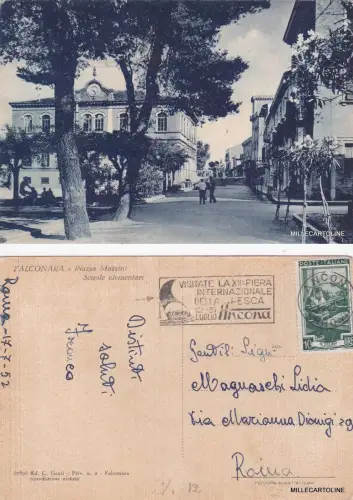 MILLECARTOLINE
FALCONARA - Piazza Mazzini
Scuole elementari
VISITATE LA XII FIERA
INTERNAZIONALE
DELLA PESCA
LUGLIO Ancona
POSTE ITALIANE
Roma - 17-7-52
Distinti
saluti
Gentili Sig.
Magnaschi Lidia
Via Marianna Dionigi
Roma
Ed. C. - Priv. n. 2 - Falconara
riproduzione vietata
MILLECARTOLINE